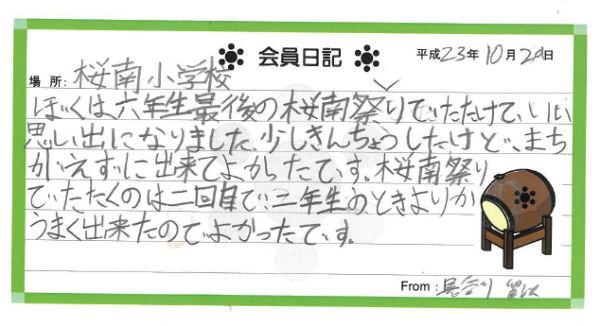 会員日記
平成23年10月29日
場所:桜南小学校
ぼくは六年生最後の桜南祭りでたたけて、いい
思い出になりました。少しきんちょうしたけど、まち
がえずに出来てよかったです。桜南祭り
でたたくのは二回目で、二年生のときよりか
うまく出来たのでよかったです。
From :